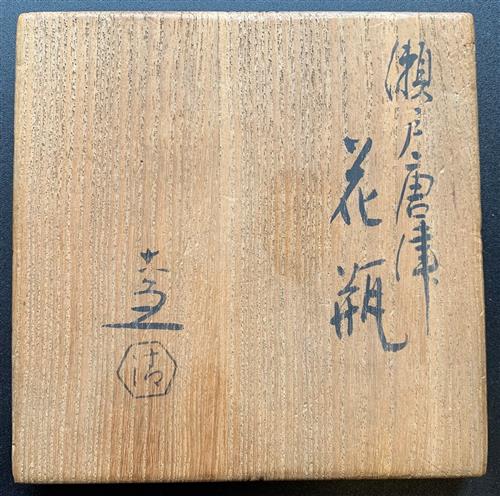 瀬戸唐津
花瓶